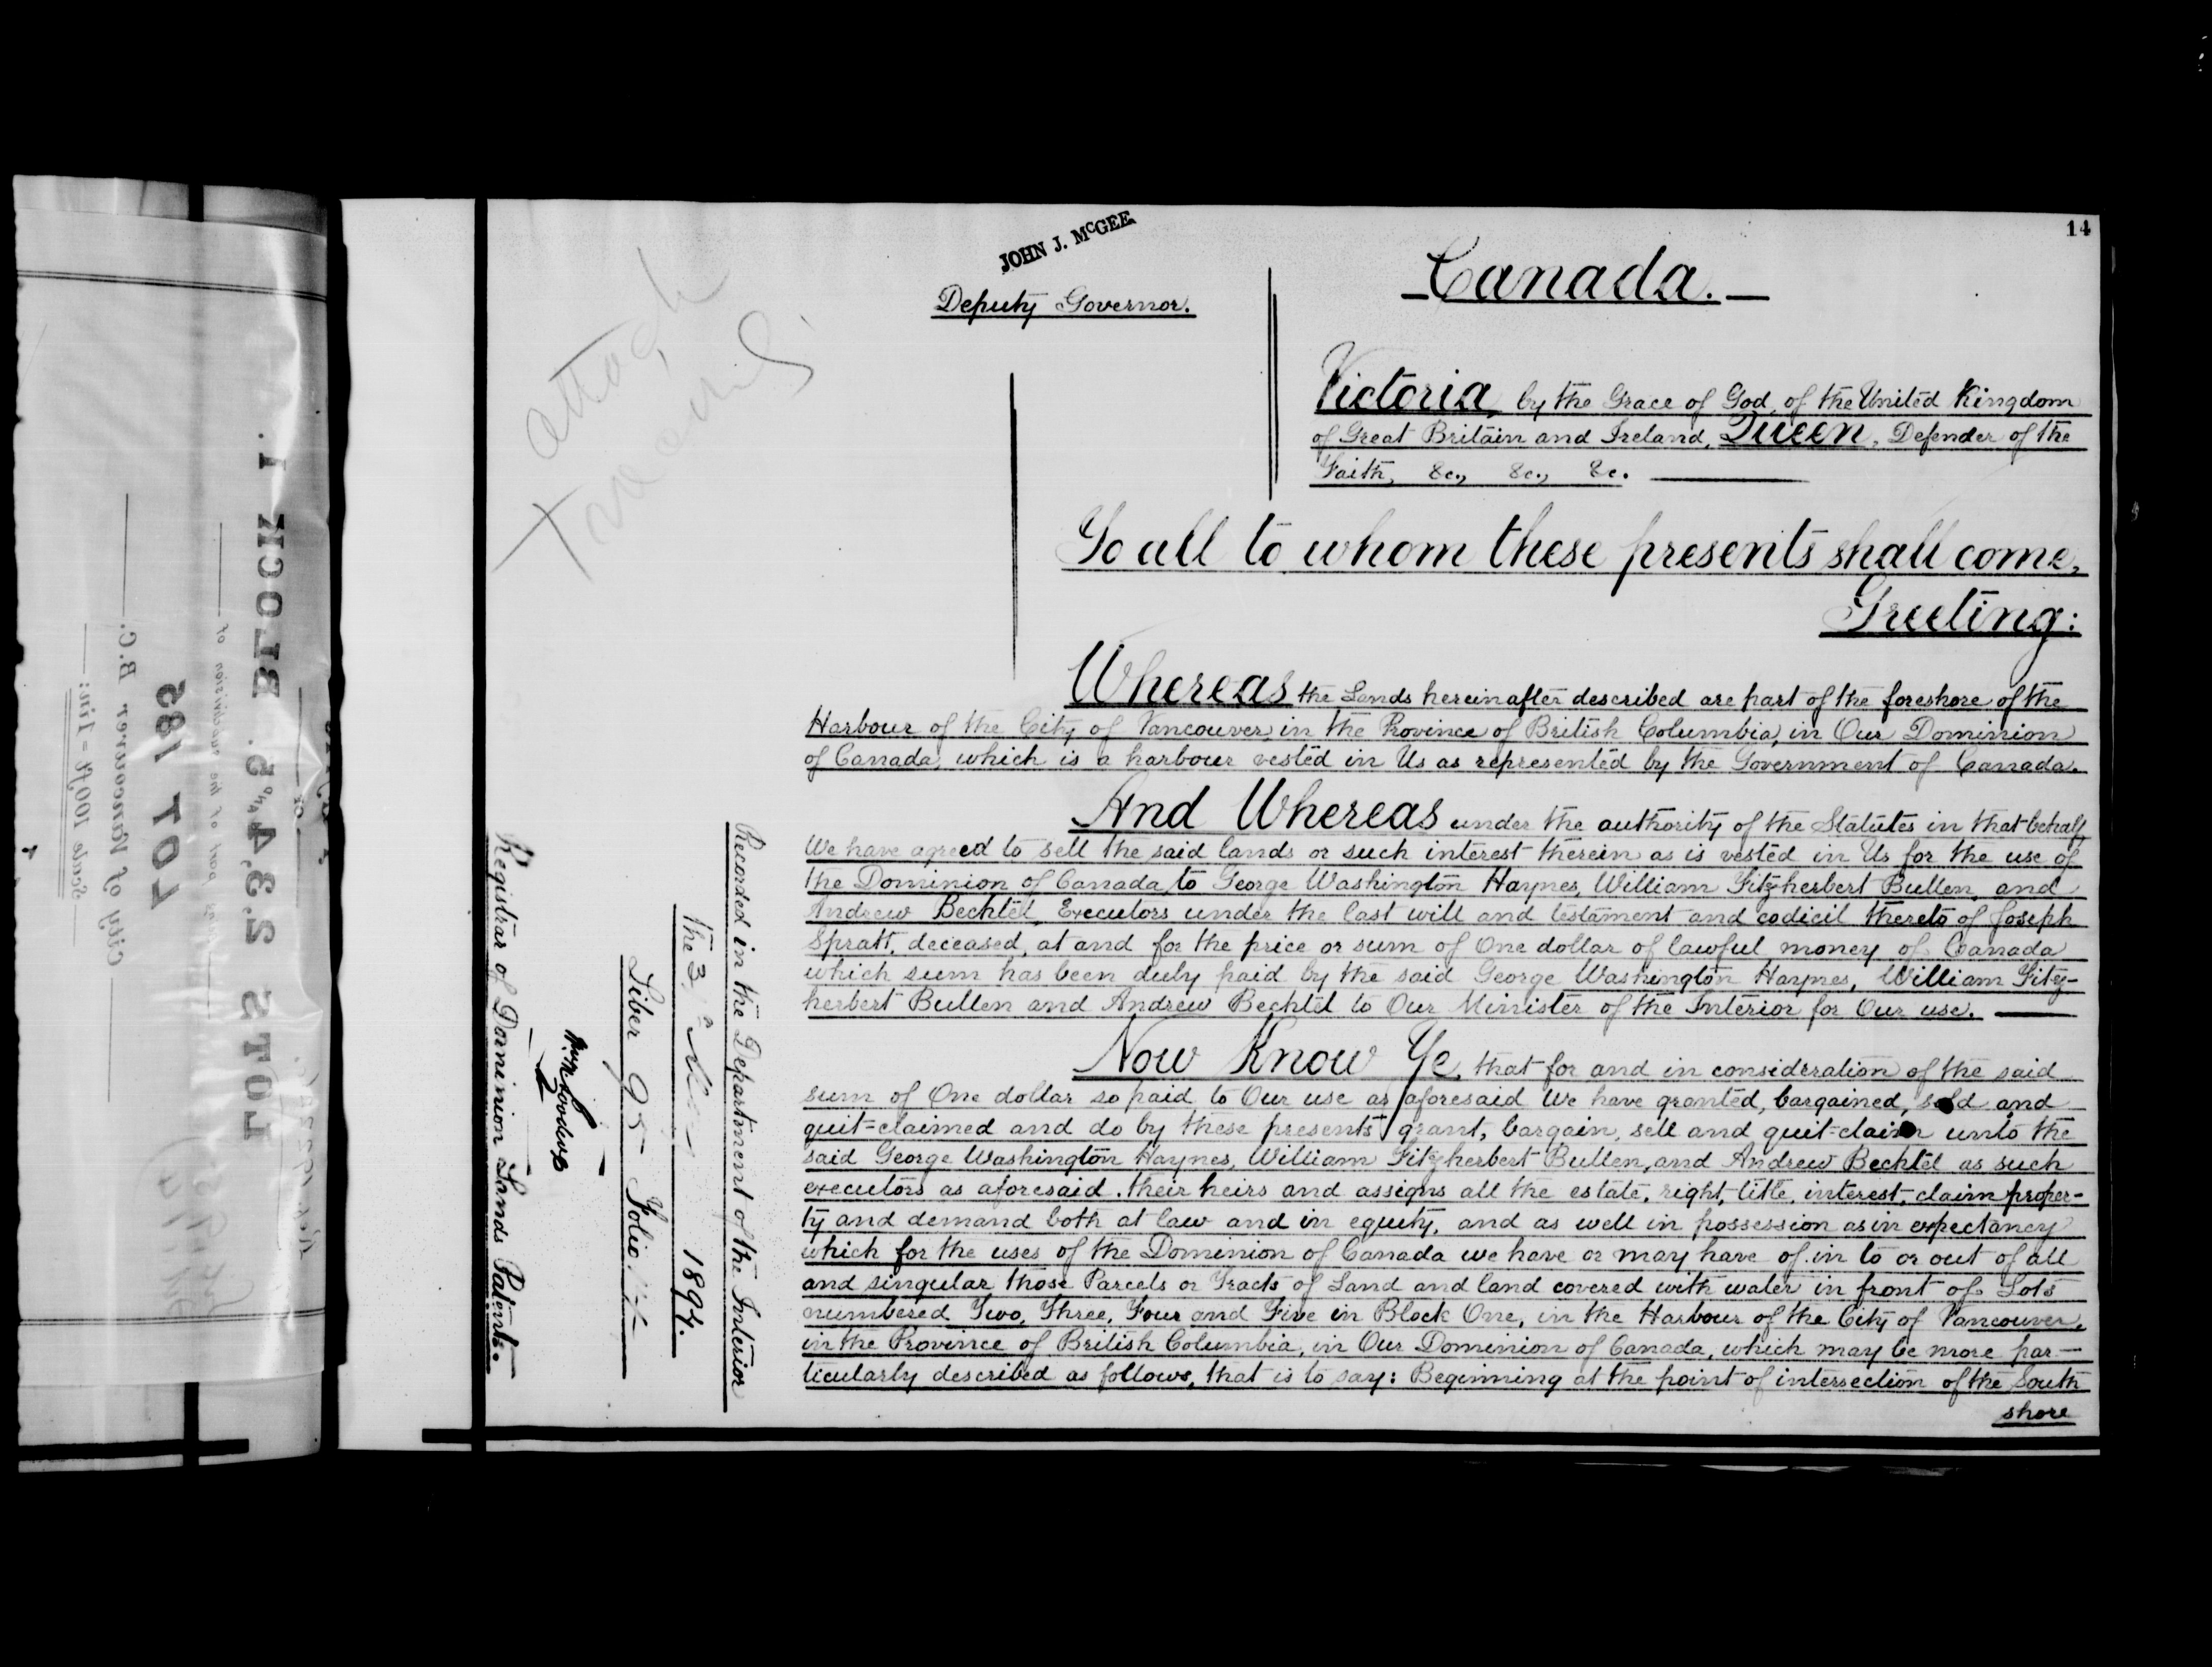 14
JOHN J. McGEE
Deputy Governor.
Canada.
Victoria, by the Grace of God, of the United Kingdom
of Great Britain and Ireland, Queen, Defender of the
Faith, &c., &c., &c.
To all to whom these presents shall come,
Greeting:
Whereas the Lands hereinafter described are part of the foreshore of the
Harbour of the City of Vancouver, in the Province of British Columbia, in Our Dominion
of Canada, which is a harbour vested in Us as represented by the Government of Canada.
And Whereas under the authority of the Statutes in that behalf
We have agreed to sell the said lands or such interest therein as is vested in Us for the use of
the Dominion of Canada, to George Washington Haynes, William Fitzherbert Bullen, and
Andrew Bechtel, Executors under the last will and testament and codicil thereto of Joseph
Spratt, deceased, at and for the price or sum of One dollar of lawful money of Canada
which sum has been duly paid by the said George Washington Haynes, William Fitz-
herbert Bullen and Andrew Bechtel to Our Minister of the Interior for Our use.
Now Know Ye, that for and in consideration of the said
sum of One dollar so paid to Our use as aforesaid We have granted, bargained, sold and
quit=claimed and do by these presents grant, bargain, sell and quit=claim unto the
said George Washington Haynes, William Fitzherbert Bullen, and Andrew Bechtel as such
executors as aforesaid, their heirs and assigns all the estate, right, title, interest, claim proper-
ty and demand both at law and in equity, and as well in possession as in expectancy
which for the uses of the Dominion of Canada we have or may have of in to or out of all
and singular those Parcels or Tracts of Land and land covered with water in front of Lots
numbered Two, Three, Four and Five in Block One, in the Harbour of the City of Vancouver,
in the Province of British Columbia, in Our Dominion of Canada, which may be more par-
ticularly described as follows, that is to say: Beginning at the point of intersection of the South
shore
Recorded in the Department of the Interior
the 3 1894.
Liber 95 Folio
Registrar of Dominion Lands Patents.
attach
LOTS 2,3,4, AND 5. BLOCK 1.
part of the subdivision of
LOT 185
City of Vancouver B.C.
Scale 100ft = 1 in: